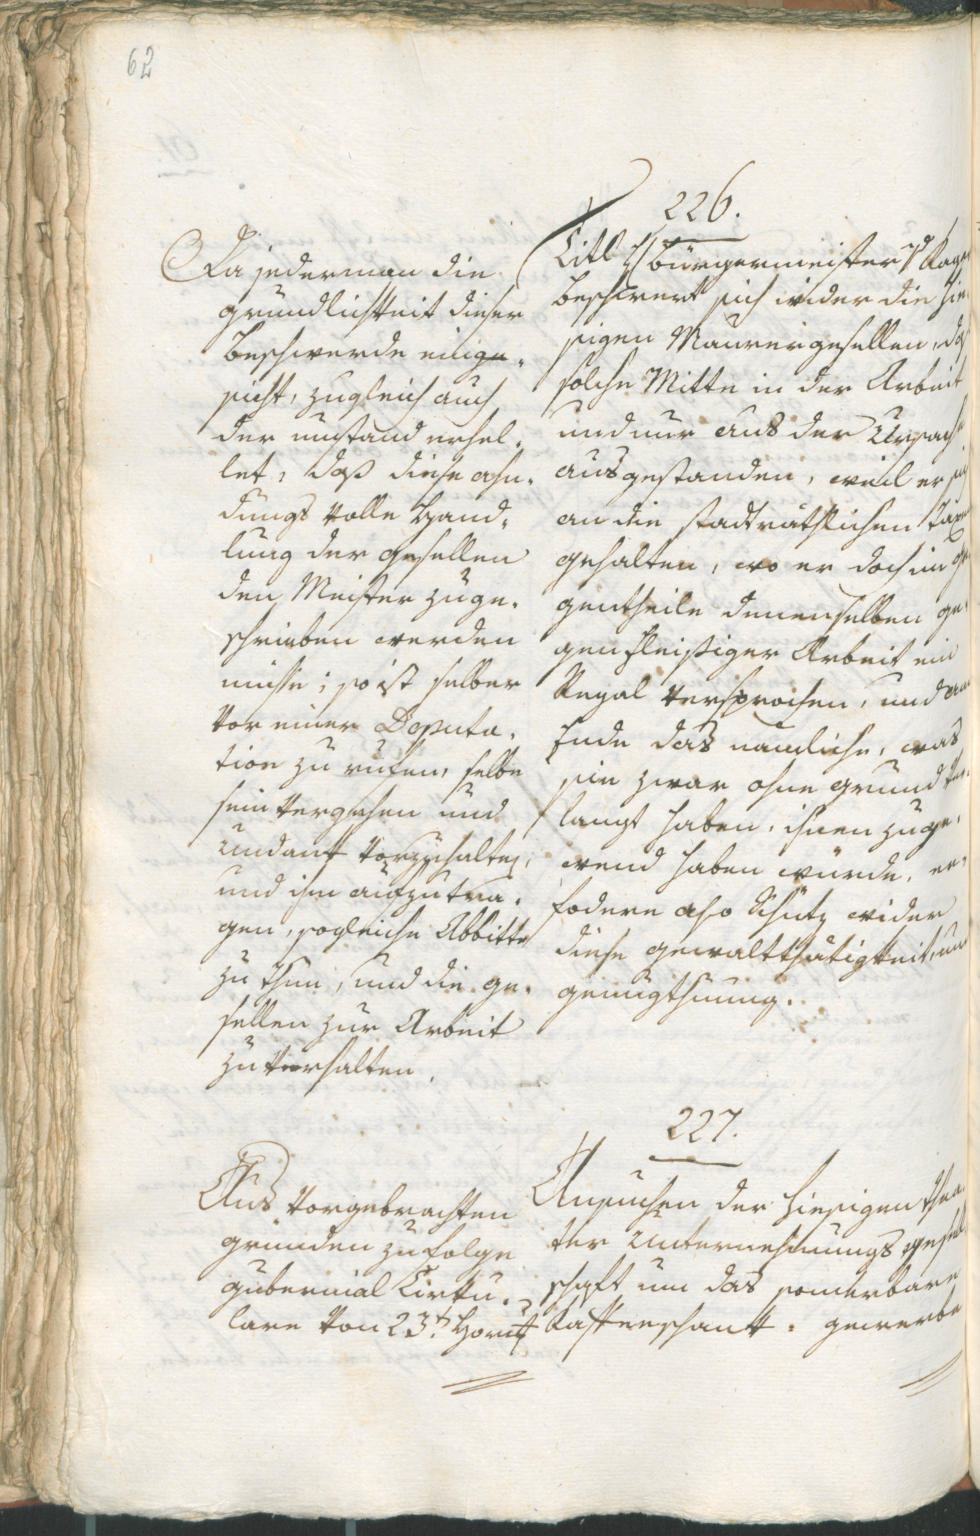 62
226.
Da jederman die
gründlichkeit dieser
beschwerde einge¬
sieht, zugleich auch
der umstand erhel¬
let, daß diese ahn¬
dungs volle Hand¬
lung der gesellen
den Meister zuge¬
schrieben werden
müsse; so ist selber
vor einer Deputa¬
tion zu rufen, selbe
sein vergehen und
undank vorzuhalten,
und ihm aufzutra¬
gen, sogleiche Abbitte
zu thun, und die ge¬
sellen zur Arbeit
zu verhalten.
Titl H bürgermeister
beschwert sich wider die hie
sigen Maurergesellen, daß
solche Mitte in der Arbeit
und nur aus der Ursache
ausgestanden, weil er sich
an die stadträthlichen Taxen
gehalten, wo er doch im ge
gentheile denenselben ge
gen fleißiger Arbeit ein
Regal versprochen, und am
Ende das nämliche, was
sie zwar ohne grund ver
langt haben, ihnen zuge¬
wend haben würde, er¬
fodere also Schutz wider
diese gewaltthätigkeit, und
genugthuung.
227.
Aus vorgebrachten
gründen zufolge
gubernial Cirku¬
lare von 23t Hornung
Ansuchen der hiesigen thea
ter Unternehmungs gesel
schaft um das sonderbare
Kaffeeschank - gewerbe